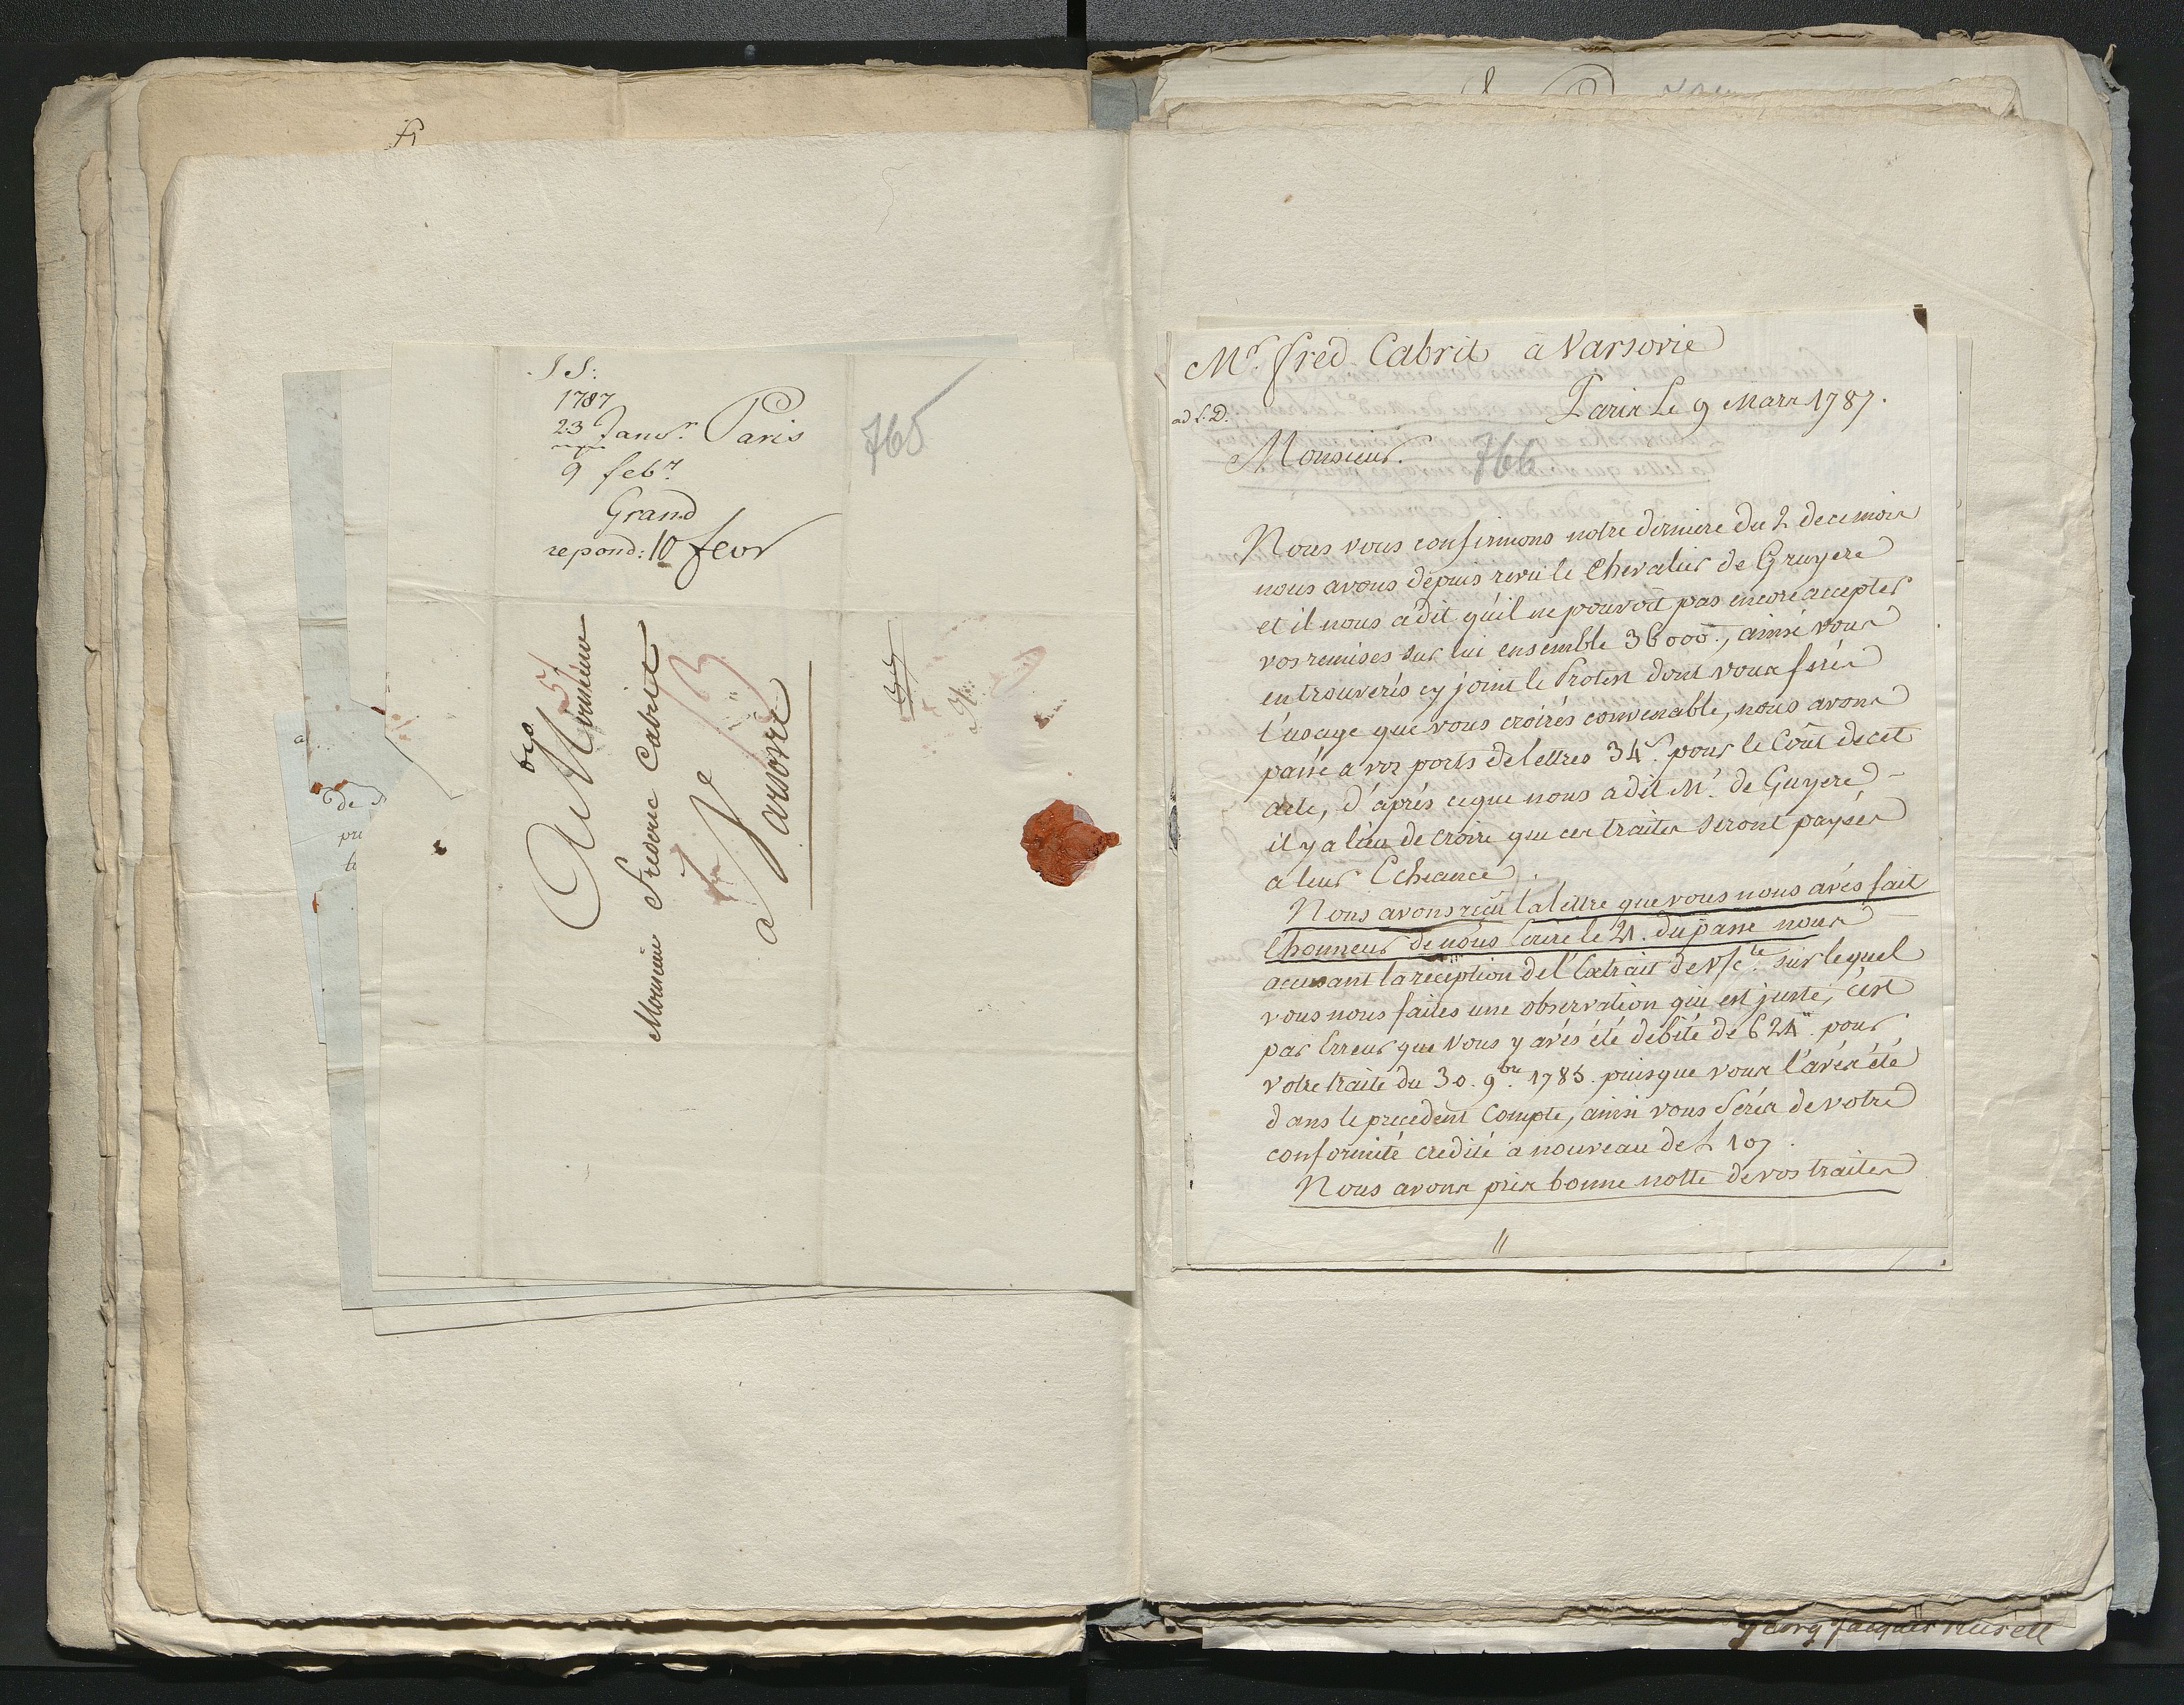 J S:
1787
23 Janvr. Paris
9 febr.
Grand
repond: 10 fevr
765
A Monsieur
Monsieur Frederic Cabrit
a Varsovie
Mr. fred Cabrit à Varsovie
Paris Le 9 Mars 1787.
Monsieur.
766
Nous vous confirmons notre derniere du 2 de ce mois
nous avons depuis revu le Chevalier de Gruyere
et il nous a dit qu'il ne pouvoit pas encore accepter
vos remises sur lui ensemble 36000., ainsi vous
en trouverés cy joint le Protest dont vous ferés
l'usage que vous croirés convenable, nous avons
passé a vos ports de lettres 34s. pour le Coût de cet
acte, d'après ce que nous a dit Mr. de Guyere
il y a lieu de croire que ces traites seront payées
a leur Echeance.
Nous avons reçu la lettre que vous nous avés fait
l'honneur de nous Ecrire le 21. du passé nous
accusant la reception de l'Extrait de v/cte. sur lequel
vous nous faites une observation qui est juste, c'est
par Erreur que vous y avés été debité de 621 pour
votre traite du 30. 9bre. 1785. puisque vous l'avés été
dans le precedent Compte, ainsi vous serés de votre
conformité credité a nouveau de £ 107.
Nous avons pris bonne notte de vos traites
georg Jacques